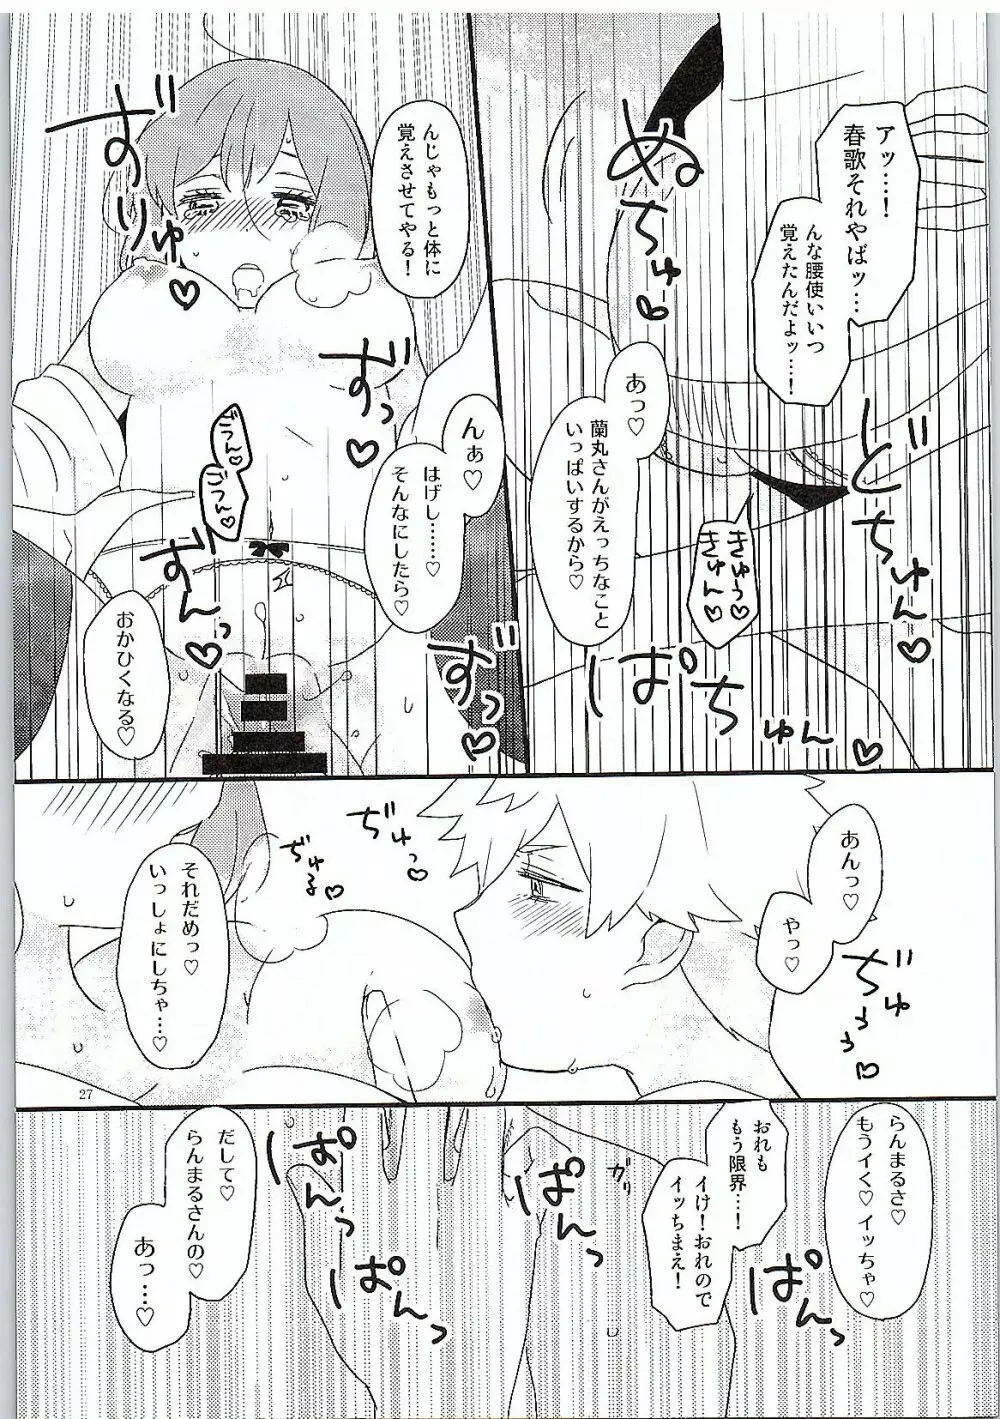 アッ…！
春歌それやばッ…
んな腰使いいつ
覚えたんだよッ…！
ぬちゅ♡
あっ♡
蘭丸さんがえっちなこと
いっぱいするから♡
きゅう♡
きゅん♡
どちゅん♡
ぱちゅん♡
んじゃもっと体に
覚えさせてやる！
ずりゅ♡
ずっ♡
んぁ♡
はげし……♡
そんなにしたら♡
ごつん♡
ごつん♡
ずんっ♡
ずっ♡
おかひくなる♡
あんっ♡
やっ♡
ぢゅぅぅ♡
ぢゅっ♡
ぢゅる♡
それだめっ♡
いっしょにしちゃ…♡
27
らんまるさ♡
もうイく♡イッちゃ♡
おれも
もう限界…！
イけ！おれので
イッちまえ！
ぱんっ
ガリ
ぱんっ
ぱんっ
ぱんっ
だして♡
らんまるさんの♡
あっ…♡